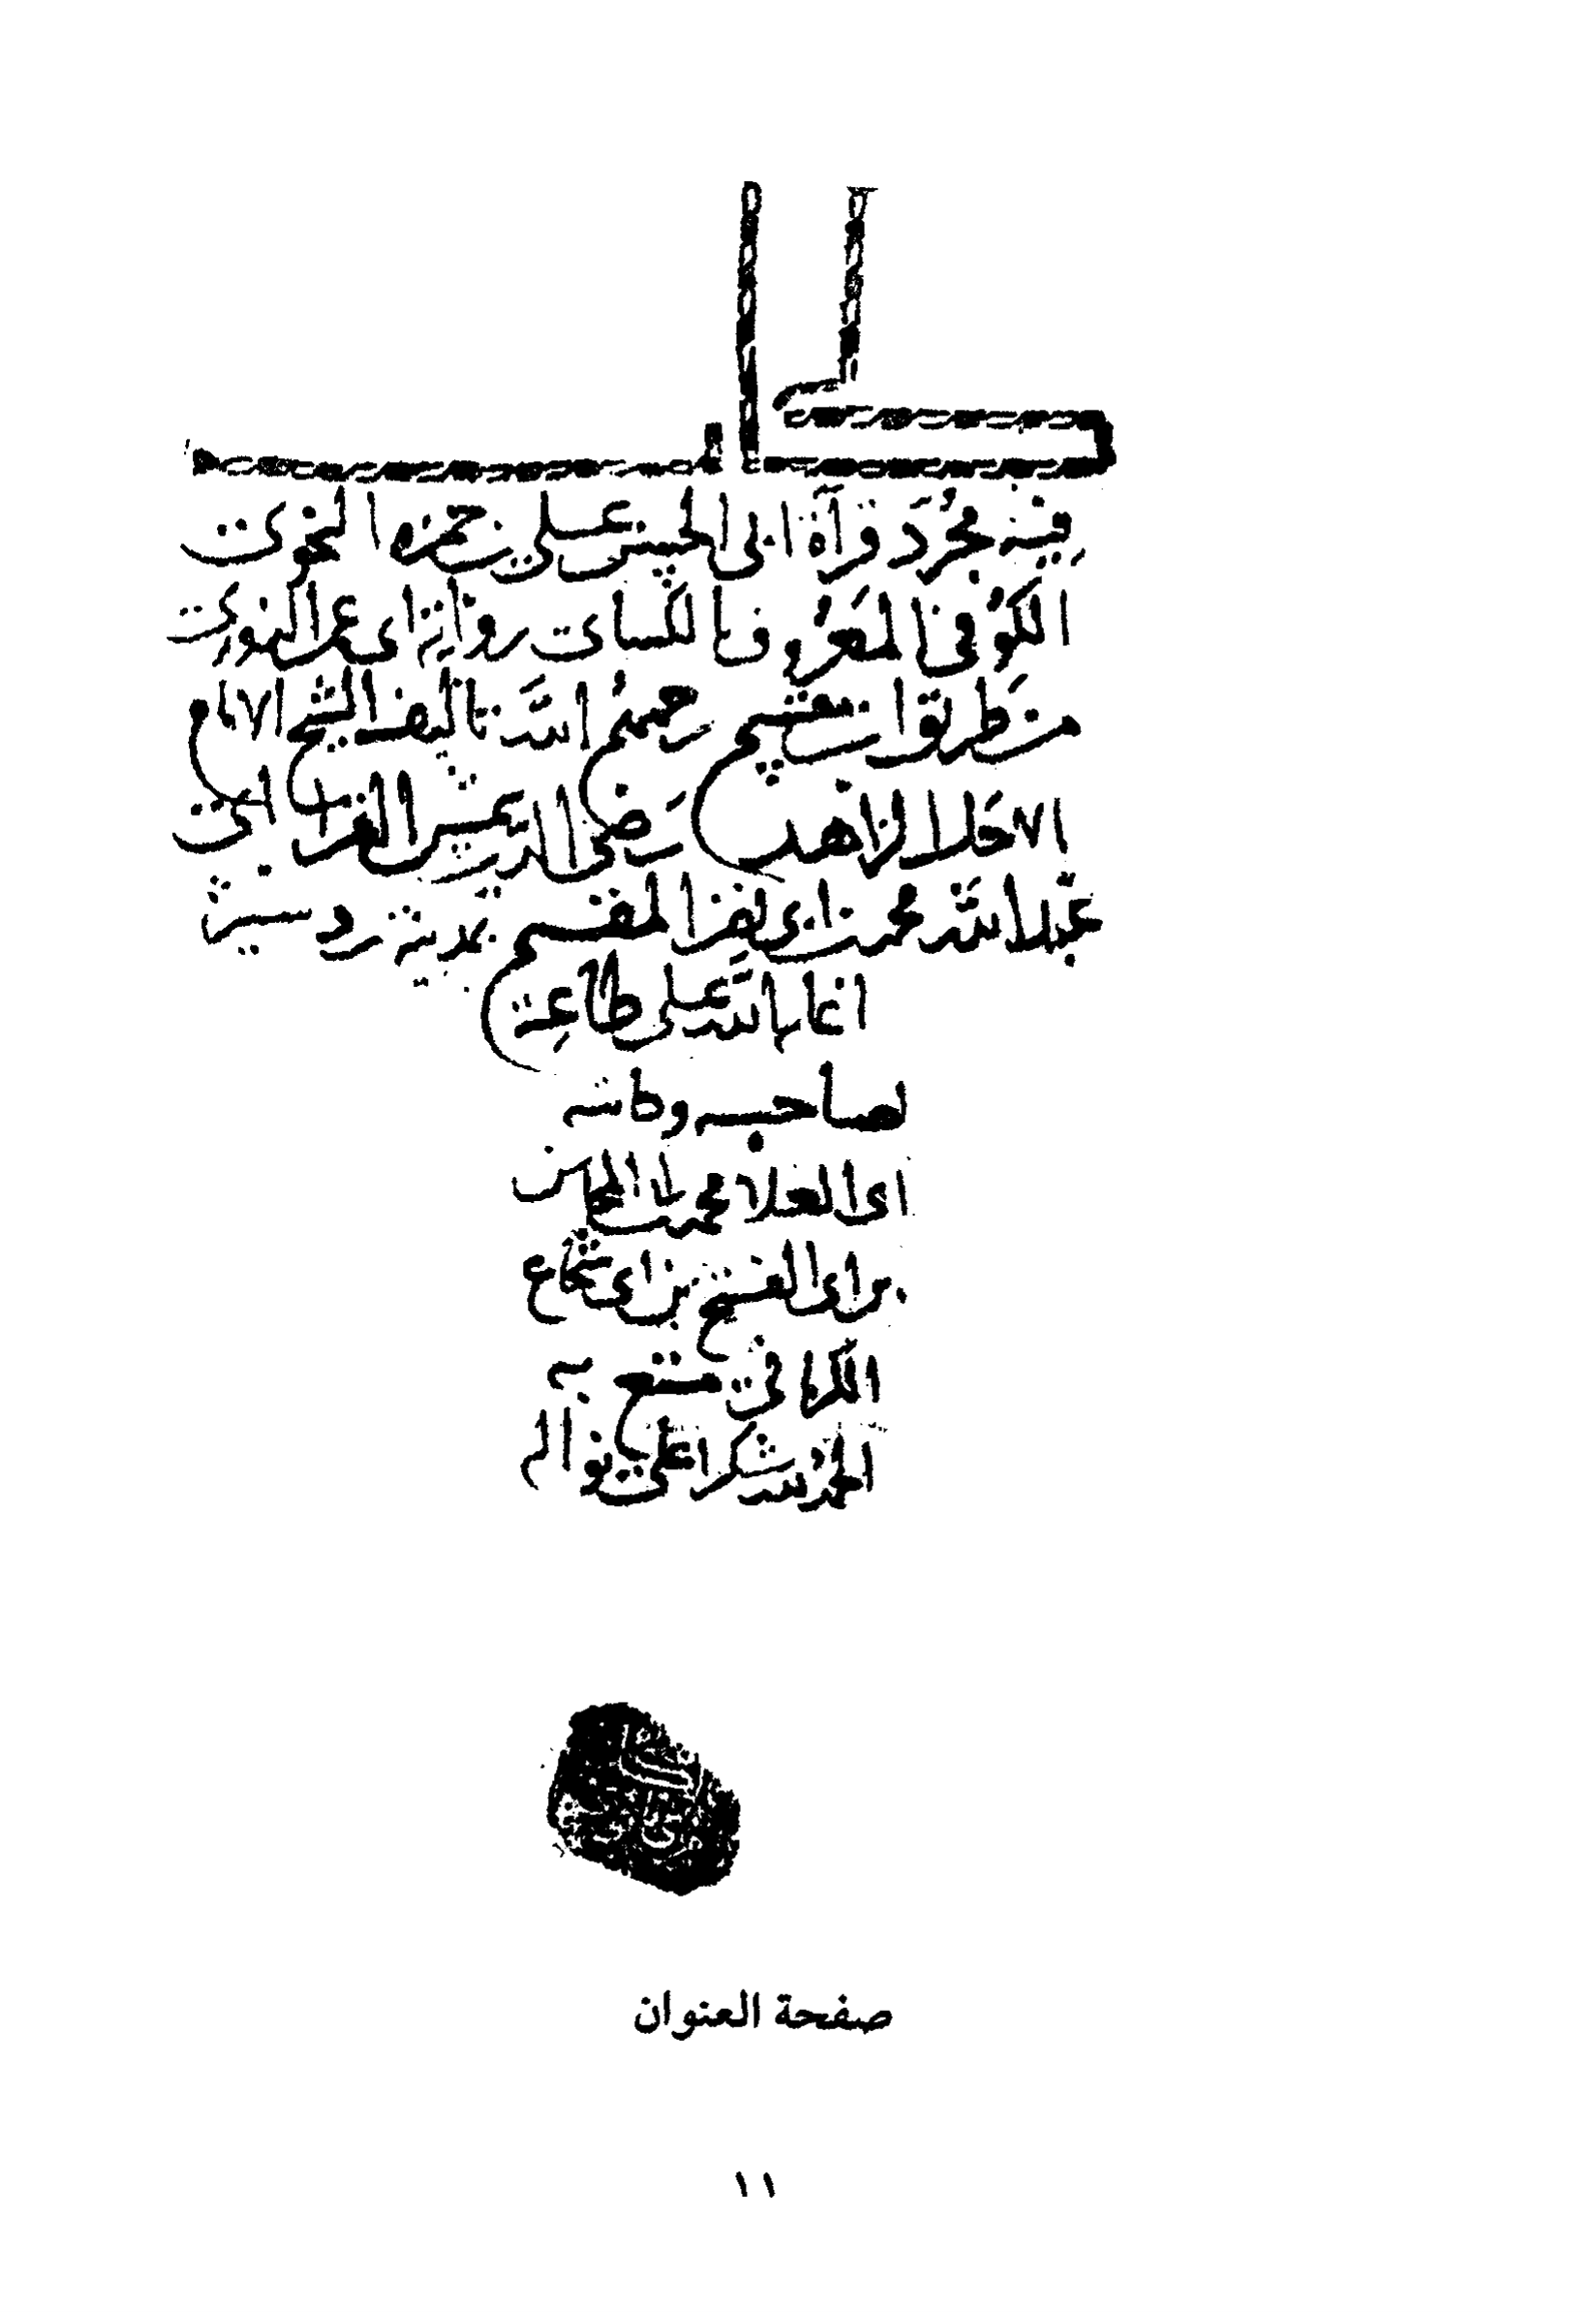 كتاب
فيه مجرد قراءة ابى الحسن على بن حمزة النحوى
الكوفى المعروف بالكسائى رواية ابى عمر الدورى
من طريق ابن مقسم رحمهم الله تاليف الشيخ الامام
الاجل الزاهد رضى الدين شمس القراء ابى
عبد الله محمد بن ابى نصر المقسم بمدينة بردسير
اعانه الله على طاعته
لصاحبه وكاتبه
ابى العلاء محمد بن ابى المحاسن
بن ابى الفتح بن ابى شجاع
الكرمانى متع به
الحمد لله شكرا على نواله
صفحة العنوان
١١